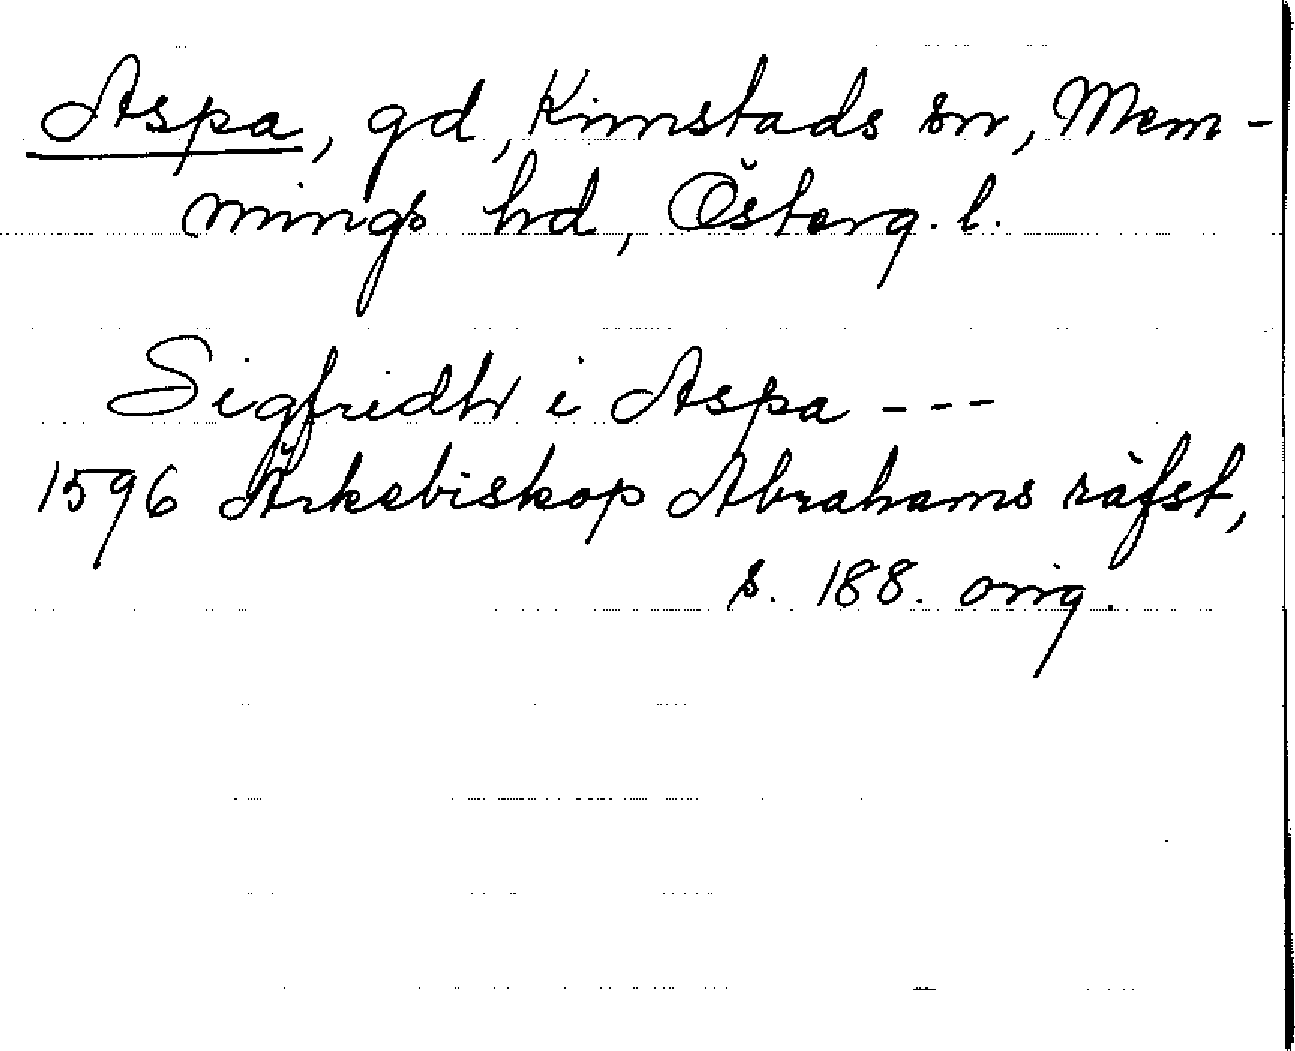 Aspa, gd, Kimstads sn, Mem-
mings hd, Österg. l.
Sigfridh i Aspa ---
1596 Ärkebiskop Abrahams räfst,
s. 188. orig.